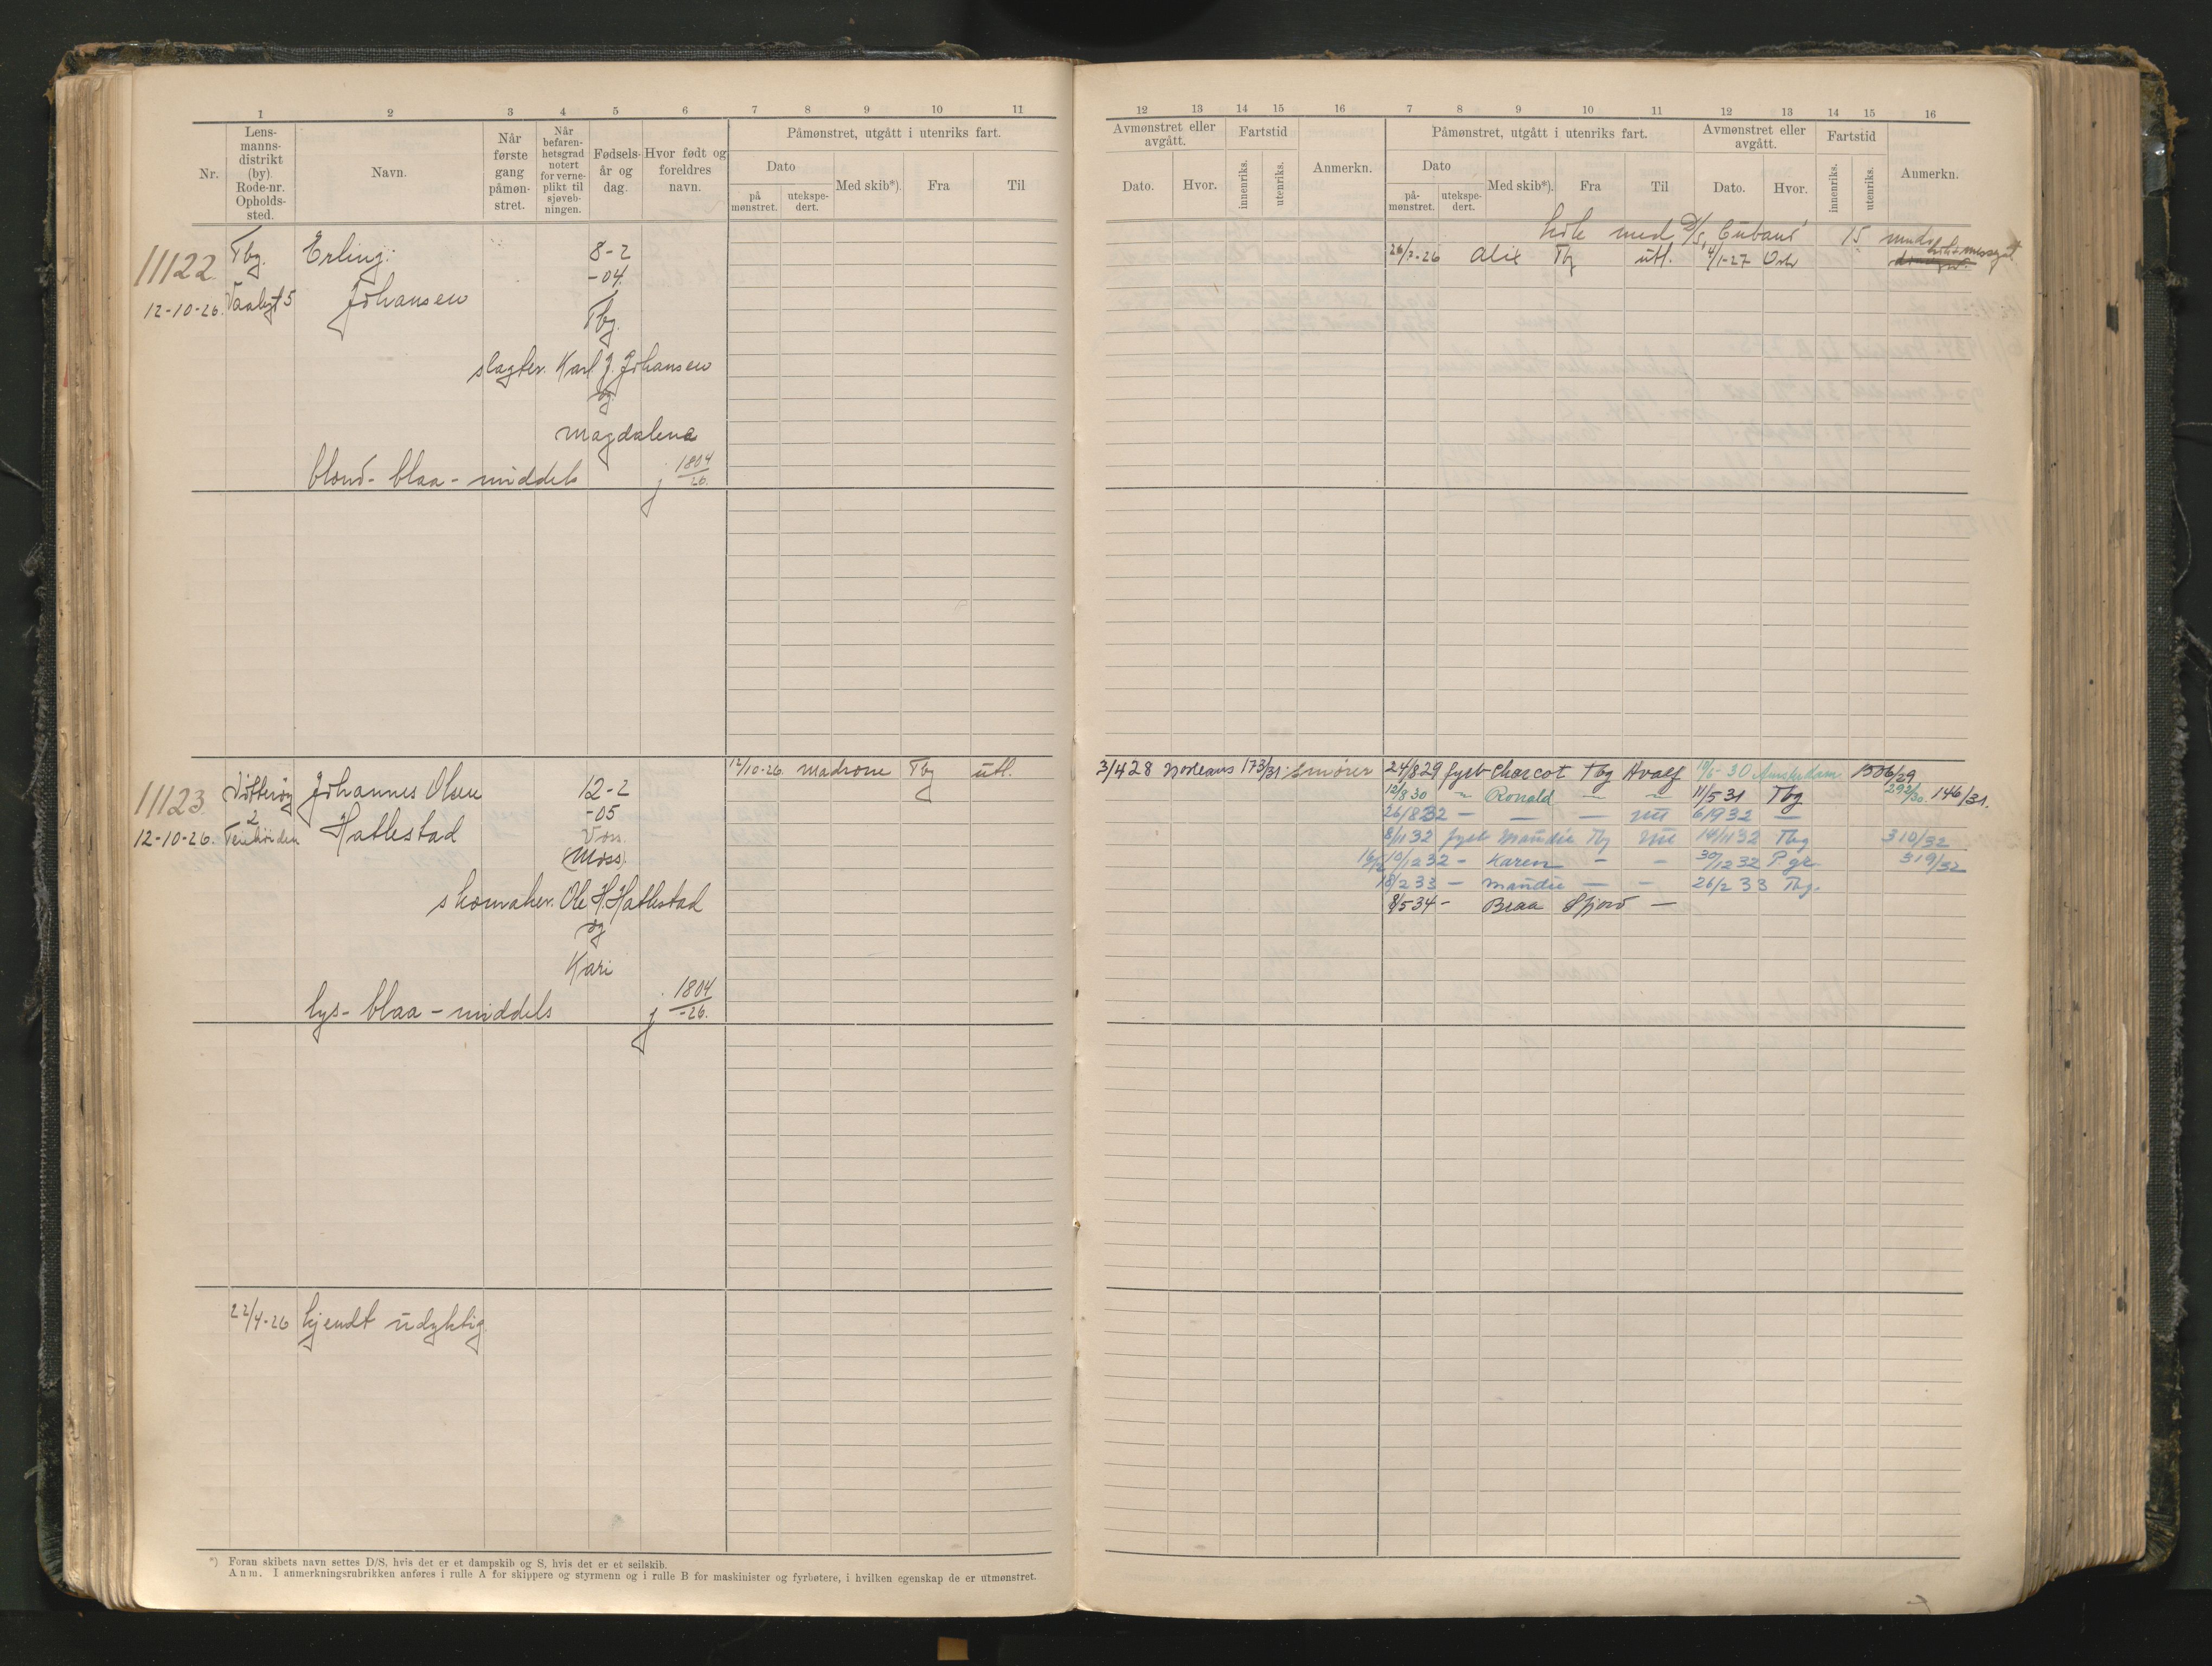 1 2 3 4 5 6 7 8 9 10 11
Nr.
Lens-
manns-
distrikt
(by).
Rode-nr.
Opholds-
sted.
Navn.
Når
første
gang
påmøn-
stret.
Når
befaren-
hetsgrad
notert
for verne-
plikt til
sjøveb-
ningen.
Fødsels-
år og
dag.
Hvor født og
foreldres
navn.
Påmønstret, utgått i utenriks fart.
Dato
på
mønstret.
utekspe-
dert.
Med skib*).
Fra
Til
11122
12-10-26.
Tbg.
Erling
Johansen
8-2
-04.
Tbg.
slagter. Karl J. Johansen
og
Magdalena
blond - blaa - middels
j 1804
26.
11123
12-10-26.
2
Johannes Olsen
Hatlestad
12-2
-05
Von
(Moss)
skomaker. Ole H. Hatlestad
og
Kari
lys - blaa - middels
j 1804
-26.
12/10-26. Madrono Tbg utl.
22/4-26 kjendt udyktig
*) Foran skibets navn settes D/S, hvis det er et dampskib og S, hvis det er et seilskib.
Anm. I anmerkningsrubrikken anføres i rulle A for skippere og styrmenn og i rulle B for maskinister og fyrbøtere, i hvilken egenskap de er utmønstret.
12 13 14 15 16 7 8 9 10 11 12 13 14 15 16
Avmønstret eller
avgått.
Dato.
Hvor.
Fartstid
innenriks.
utenriks.
Anmerkn.
Påmønstret, utgått i utenriks fart.
Dato
på-
mønstret.
utekspe-
dert.
Med skib*).
Fra
Til
Avmønstret eller
avgått.
Dato.
Hvor.
Fartstid
innenriks.
utenriks.
Anmerkn.
med D/S Cubano 15
-26 Alix Tbg utl. 4/1-27 Oslo
3/4 28 173/31 Smører
24/8 29 fyrb Charcot Tbg Hvalf -30 Amsterdam 1506/29
12/8 30 " Ronald — " 11/5 31 Tbg 292/30. 146/31.
26/8 32 — — — utl 6/9 32 —
8/11 32 fyrb Maudie Tbg utl 14/11 32 Tbg 310/32
10/12 32 - Karen - - 30/12 32 P. gr. 319/32
18/2 33 — Maudie — - 26/2 33 Tbg.
8/5 34 - Beau —